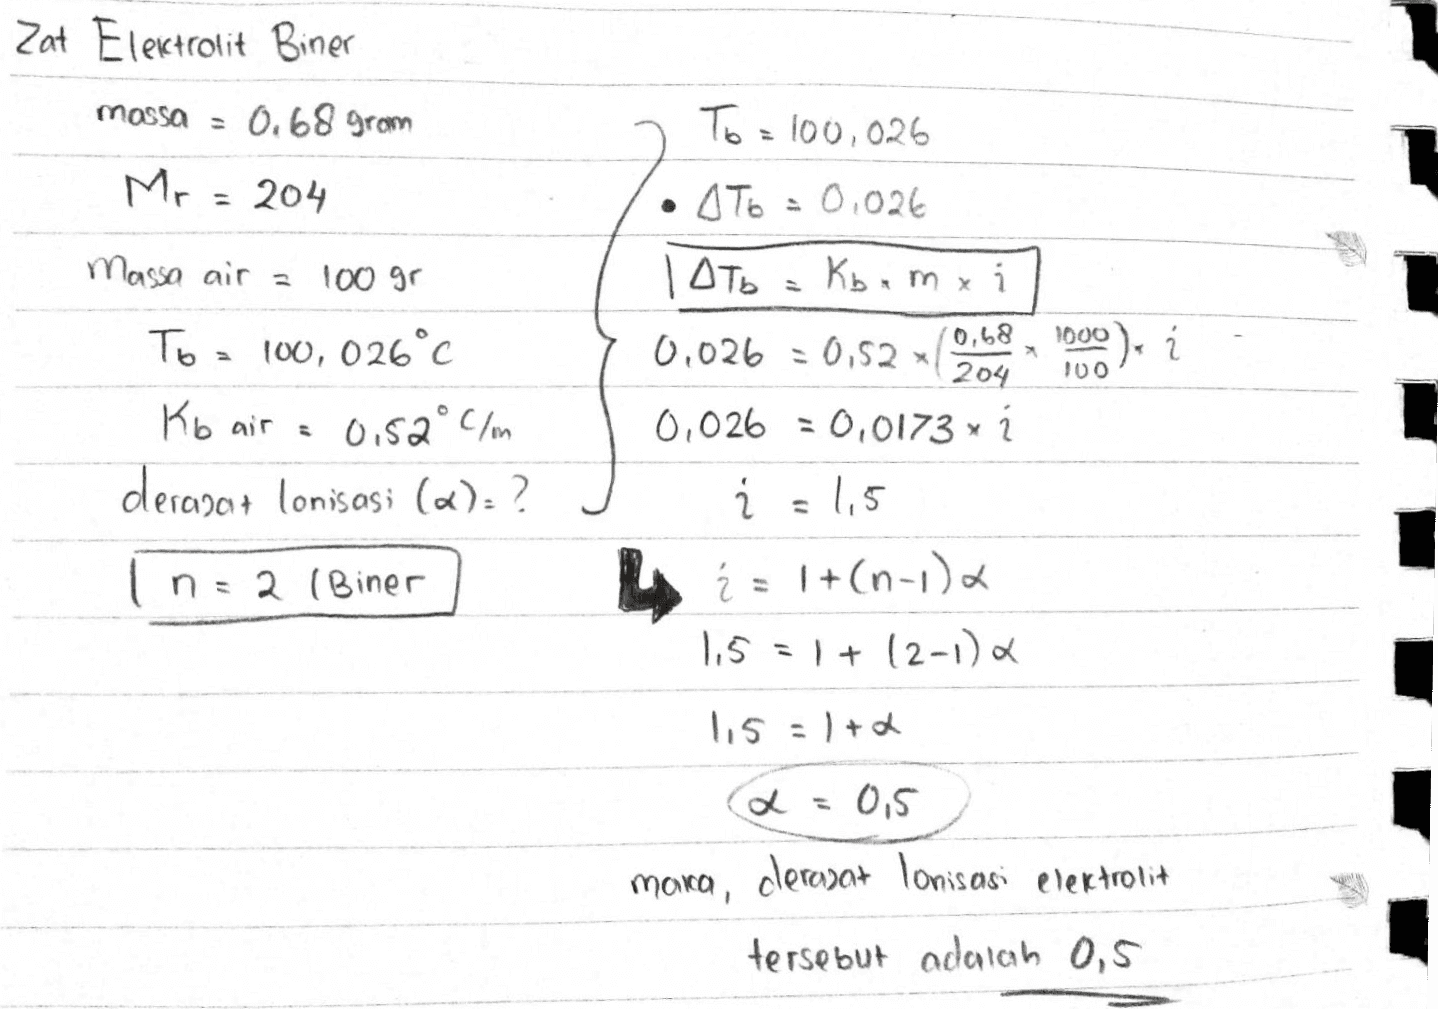 Zat Elektrolit Biner
massa = 0,68 gram
Mr = 204
Massa air = 100 gr
Tb = 100,026°C
Kb air = 0,52°C/m
derajat Ionisasi (α) = ?
n = 2 (Biner
Tb = 100,026
• ΔTb = 0,026
ΔTb = Kb × m × i
0,026 = 0,52 × (0,68/204 × 1000/100) × i
0,026 = 0,0173 × i
i = 1,5
i = 1+(n-1)α
1,5 = 1 + (2-1)α
1,5 = 1+α
α = 0,5
maka, derajat Ionisasi elektrolit
tersebut adalah 0,5